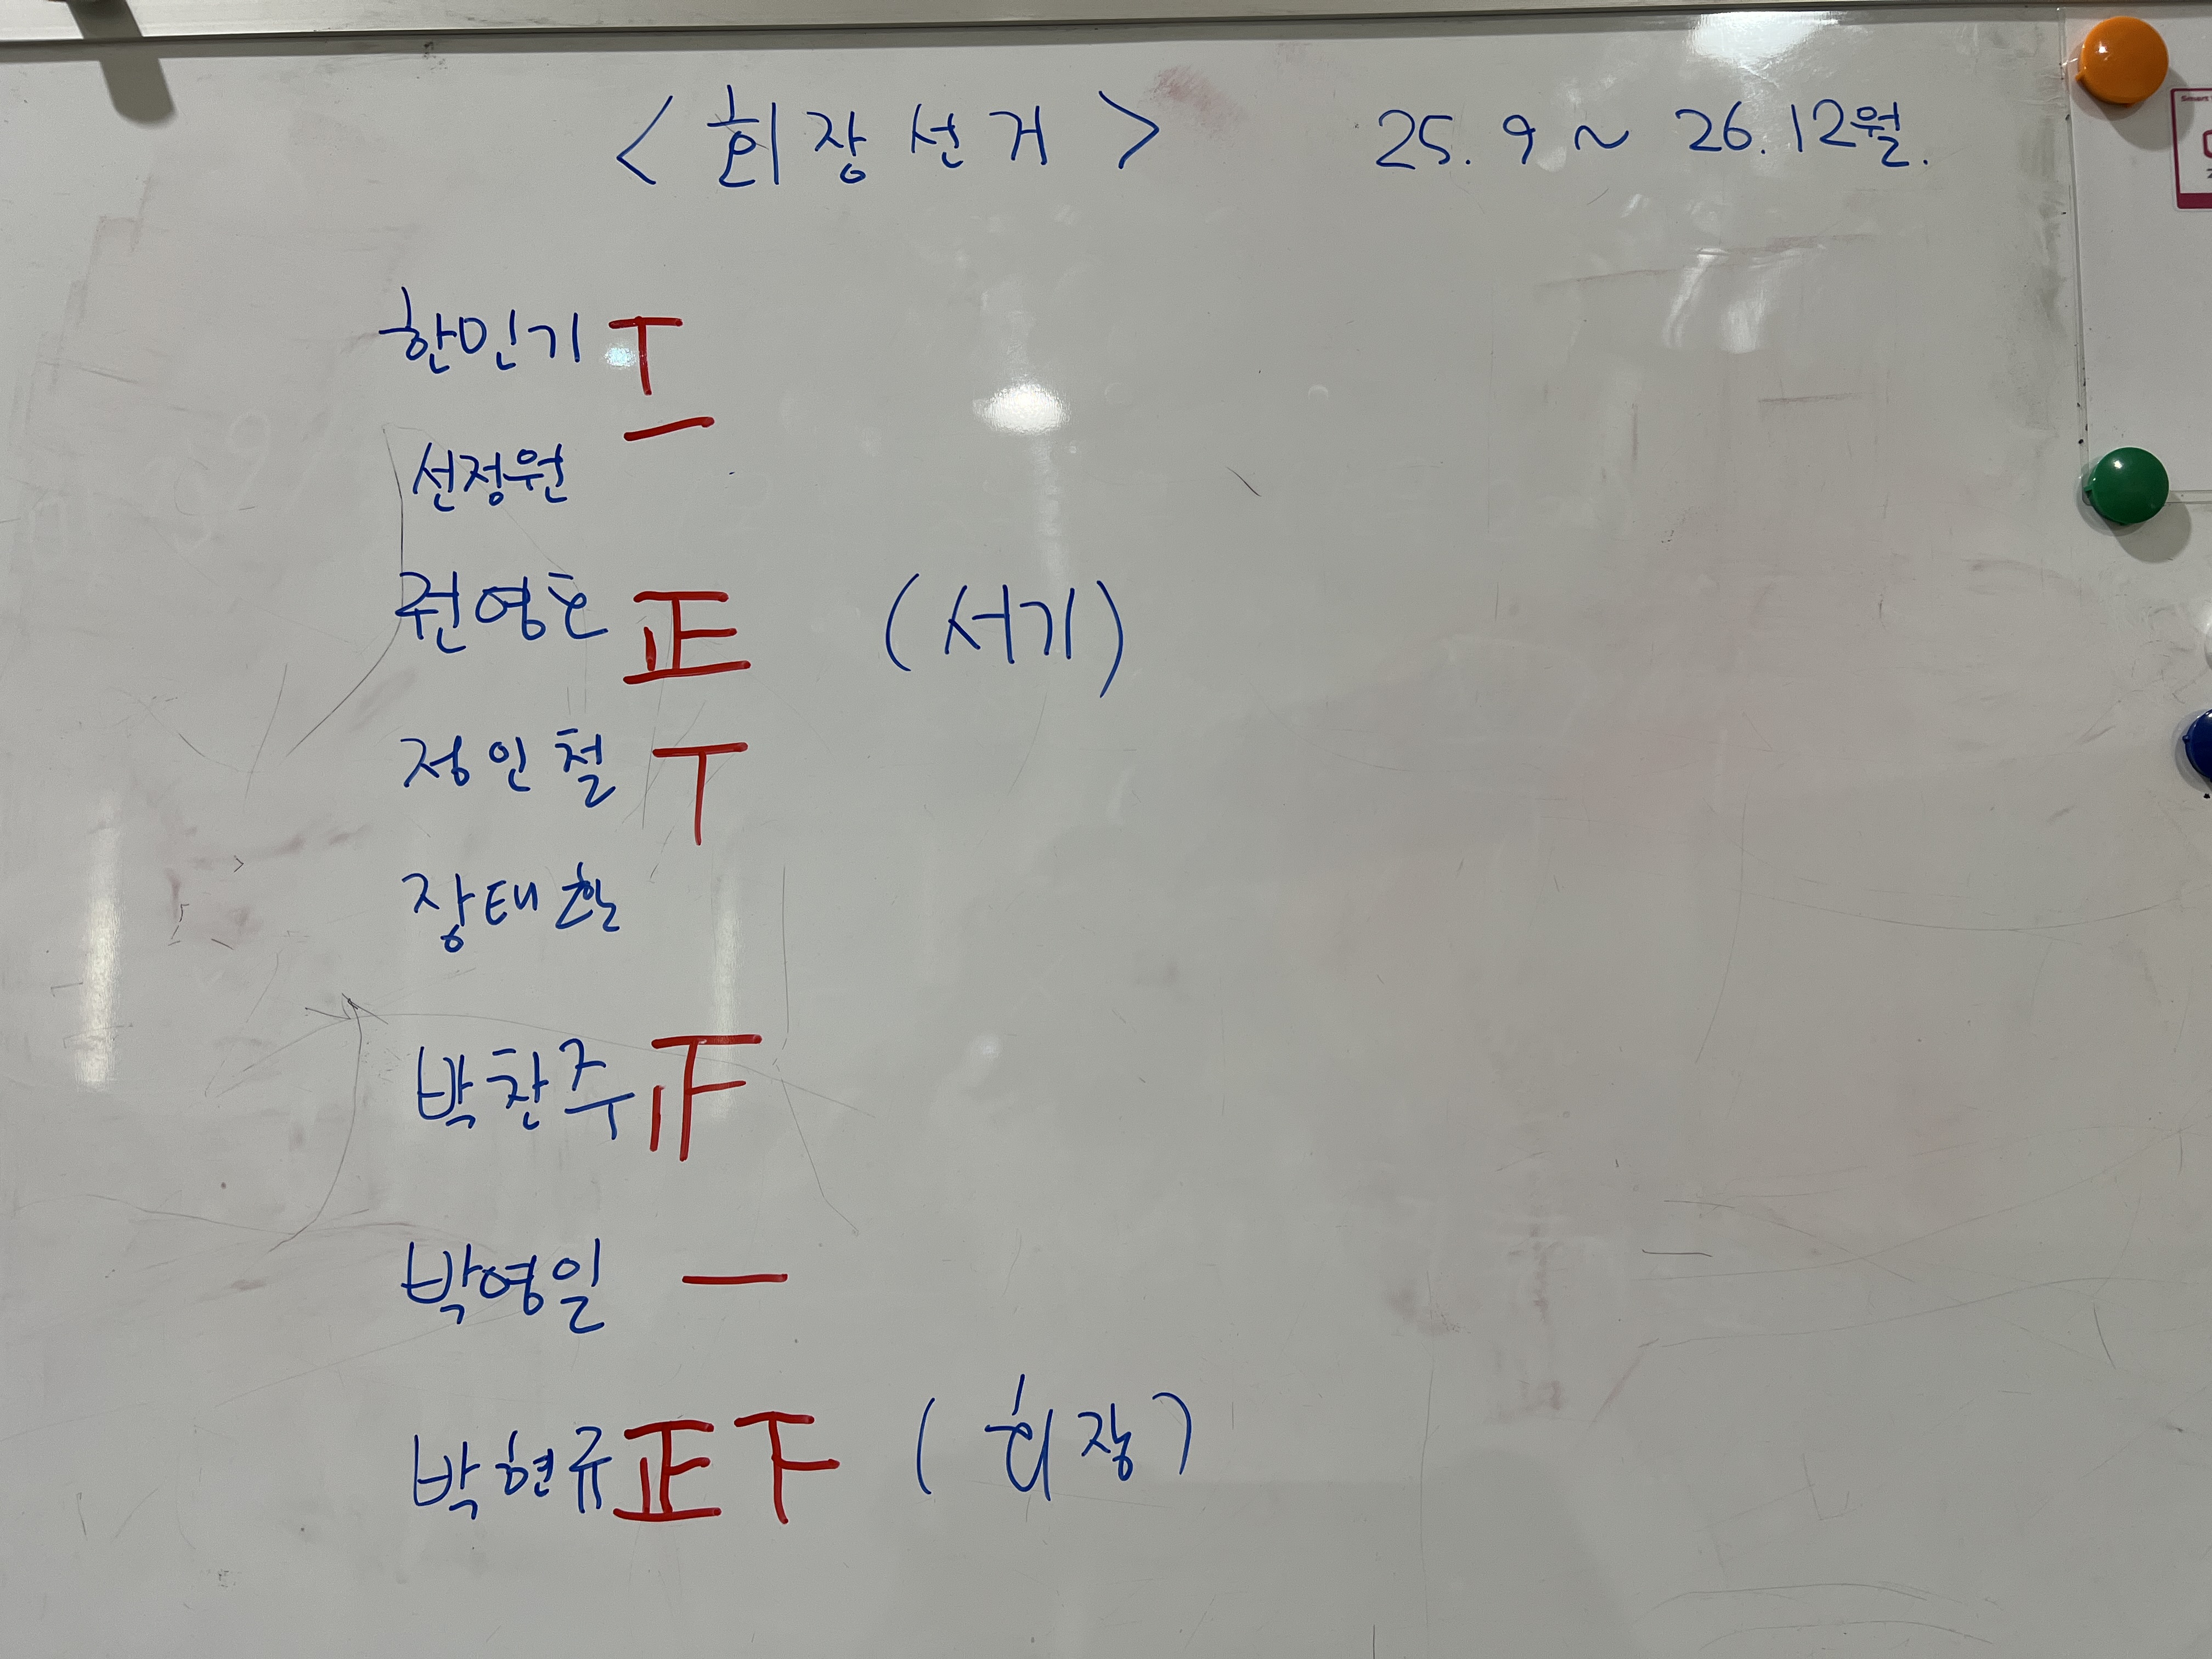 <회장선거> 25. 9 ~ 26. 12월.
한민기 丅
一
선정원
권영호 正 (서기)
정인철 丅
장태환
박찬주 𠄟
박영일 一
박현규 正 下 (회장)